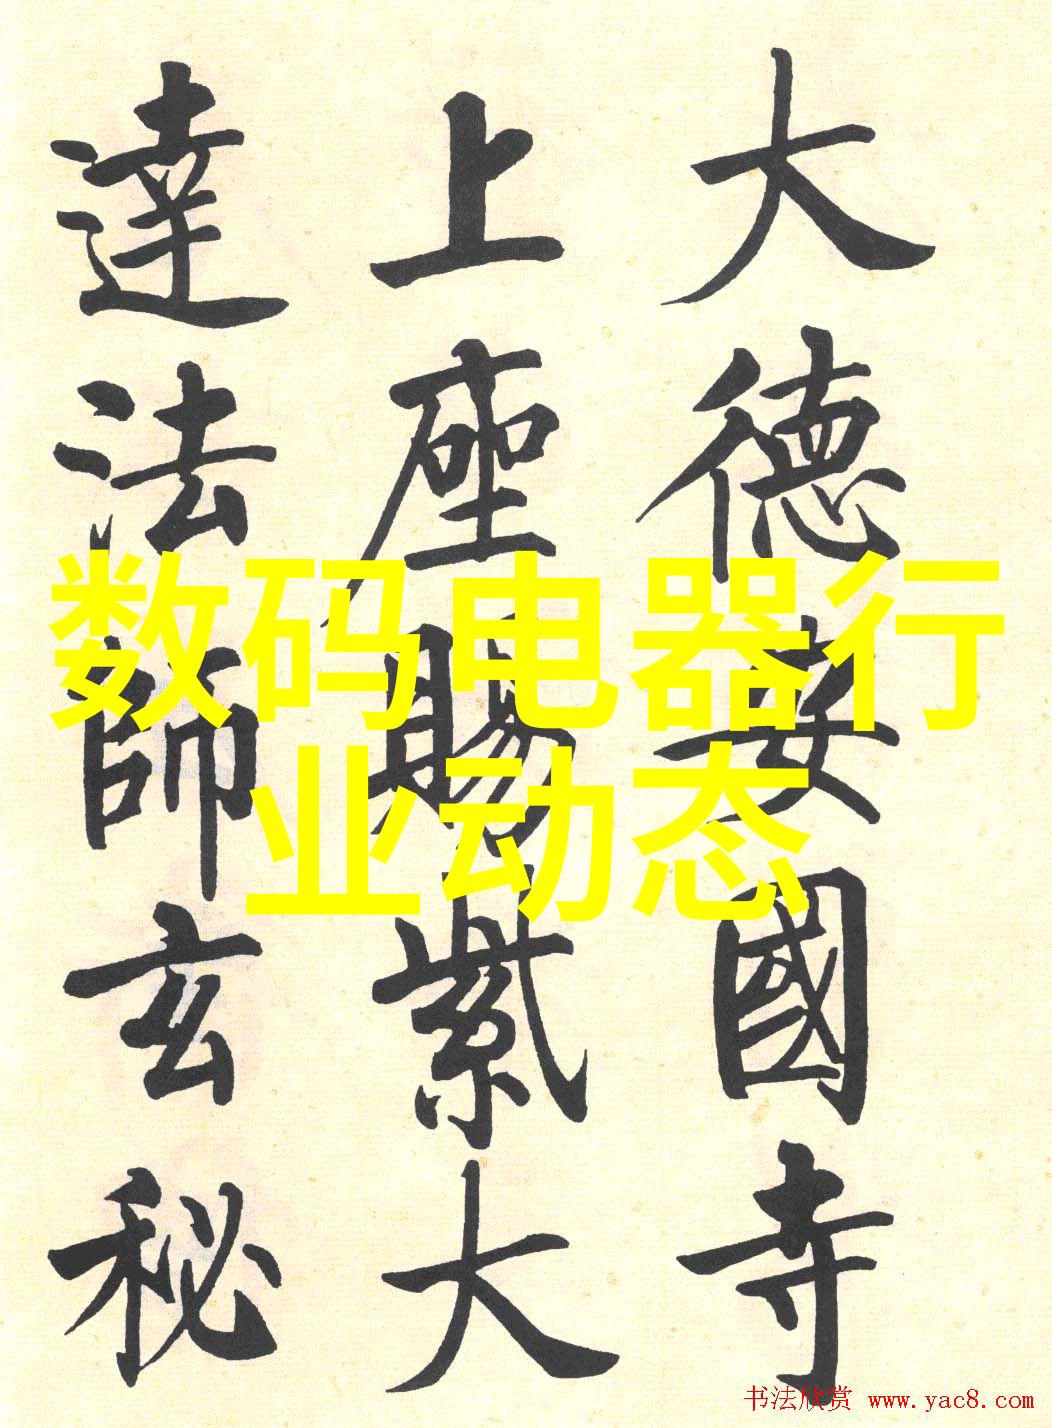 大德安國寺
上座賜紫大
達法師玄秘
数码电器行
业动态
书法欣赏 www.yac8.com